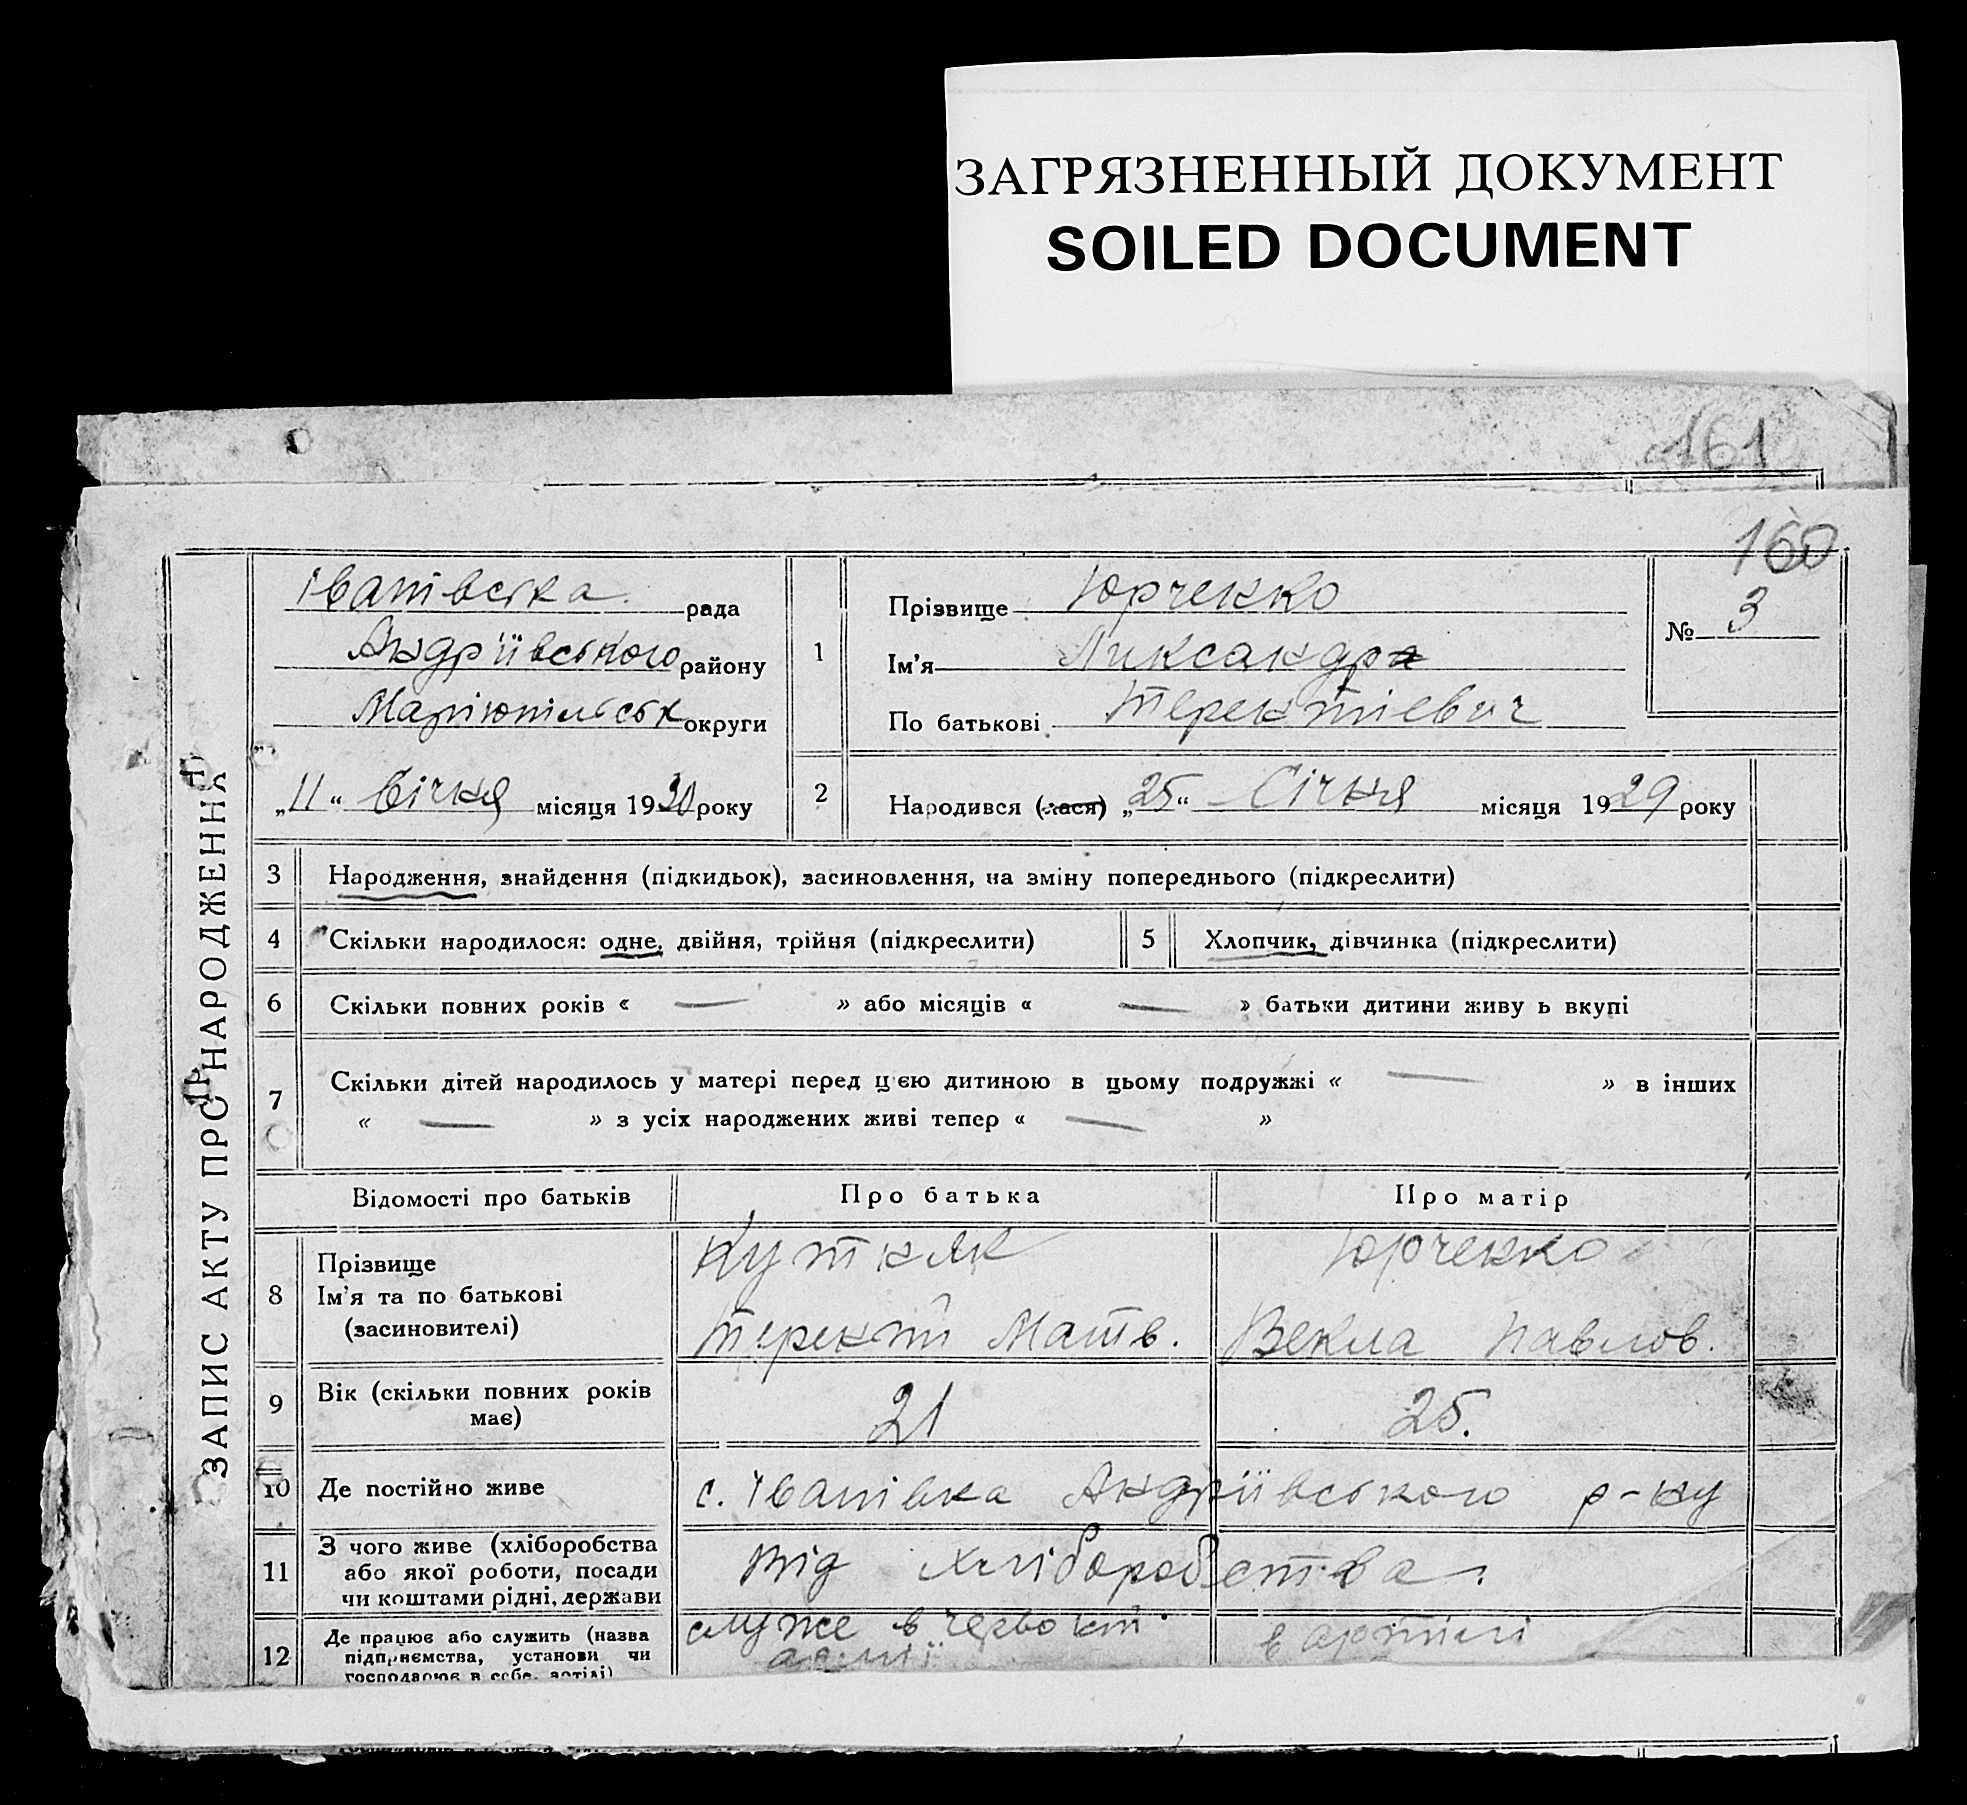 ЗАГРЯЗНЕННЫЙ ДОКУМЕНТ
SOILED DOCUMENT
161
160
ЗАПИС АКТУ ПРО НАРОДЖЕННЯ
Іванівська рада
Андріївського району
Маріюпільськ округи
„11“ Січня місяця 1930 року
1
Прізвище Юрченко
Ім'я Ликсандр
По батькові Терентієвич
№ 3
2
Народився (лася) „25“ Січня місяця 1929 року
3 Народження, знайдення (підкидьок), засиновлення, на зміну попереднього (підкреслити)
4 Скільки народилося: одне, двійня, трійня (підкреслити) 5 Хлопчик, дівчинка (підкреслити)
6 Скільки повних років « — » або місяців « — » батьки дитини живу ь вкупі
7 Скільки дітей народилось у матері перед цією дитиною в цьому подружжі « — » в інших
« — » з усіх народжених живі тепер « — »
Відомості про батьків Про батька Про матір
8 Прізвище
Ім'я та по батькові
(засиновителі)
Кутняк Юрченко
Терентій Матв. Векла Павлов.
9 Вік (скільки повних років має) 21 25.
10 Де постійно живе с. Іванівка Андріївського р-ну
11 З чого живе (хліборобства
або якої роботи, посади
чи коштами рідні, держави
Від хліборобства
12 Де працює або служить (назва
підприємства, установи чи
господарює в себе, артілі)
служе в червоній
армії
в артілі